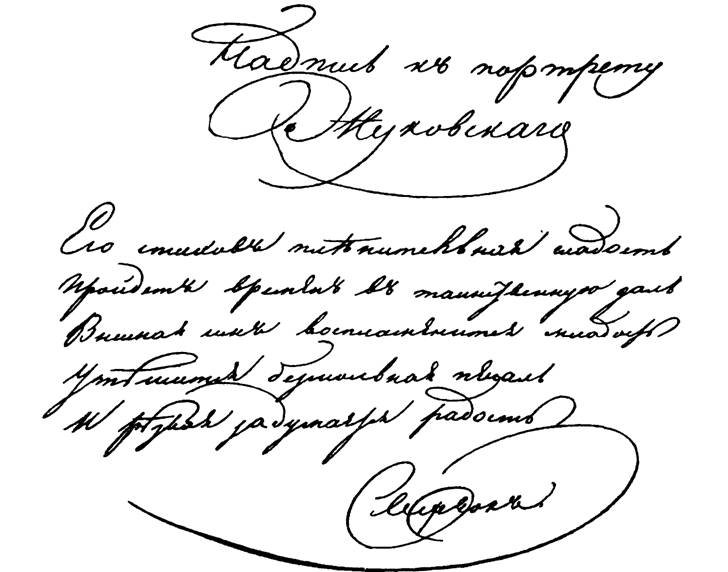 Надпись къ портрету
Жуковскаго
Его стиховъ плѣнительная сладость
Пройдетъ временъ въ таинственную даль
Внимая имъ воспламенится младость
Утѣшится безмолвная печаль
И рѣзвая задумается радость
Сверчокъ.